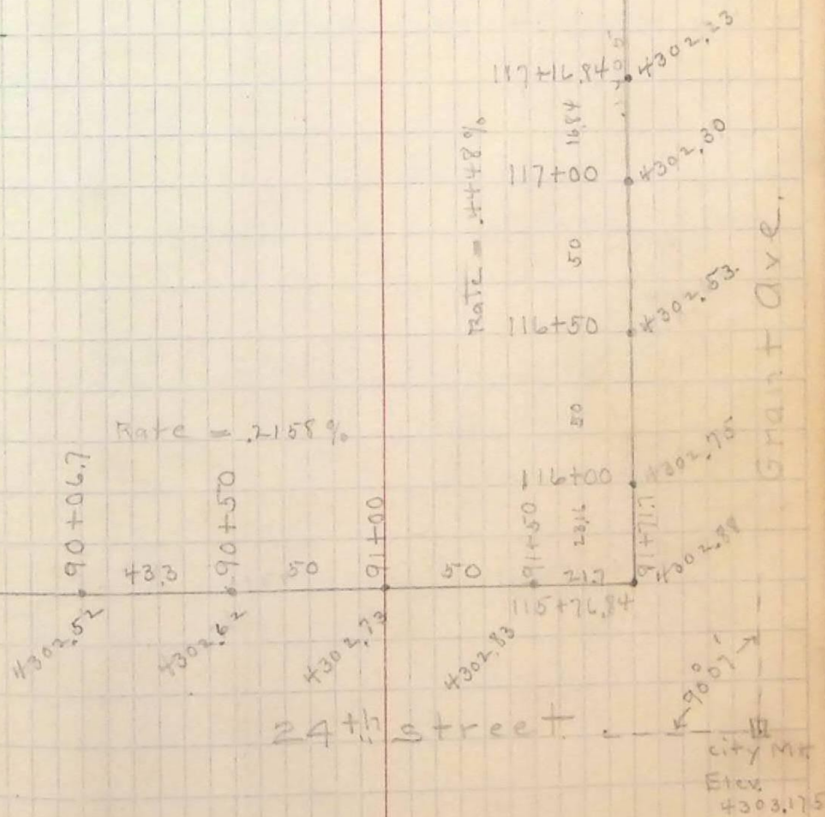 117+16.84
4302.23
16.84
117+00
4302.30
Rate = .4448%
50
116+50
4302.53
50
116+00
4302.75
23.16
Grant Ave.
Rate = .2158%
90+06.7
43.3
90+50
50
91+00
50
91+50
21.7
91+71.7
115+76.84
4302.88
4302.52
4302.62
4302.73
4302.83
90°07'
24th street
City Mk
Elev.
4303.175